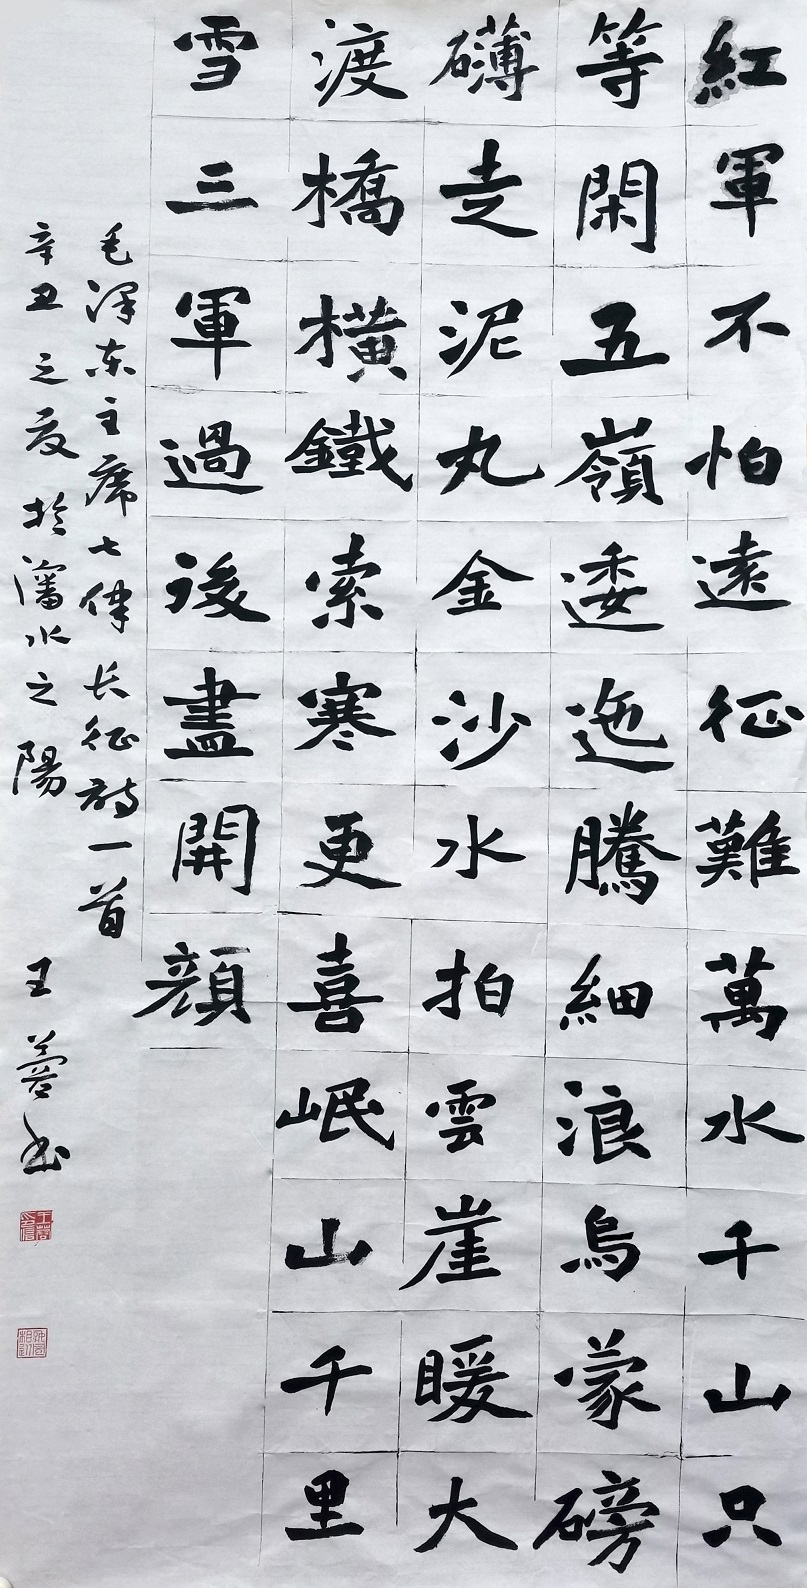 紅軍不怕遠征難萬水千山只
等閑五嶺逶迤騰細浪烏蒙磅
礴走泥丸金沙水拍雲崖暖大
渡橋橫鐵索寒更喜岷山千里
雪三軍過後盡開顔
毛澤东主席七律长征詩一首
辛丑之夏於瀋水之陽
王蕾书